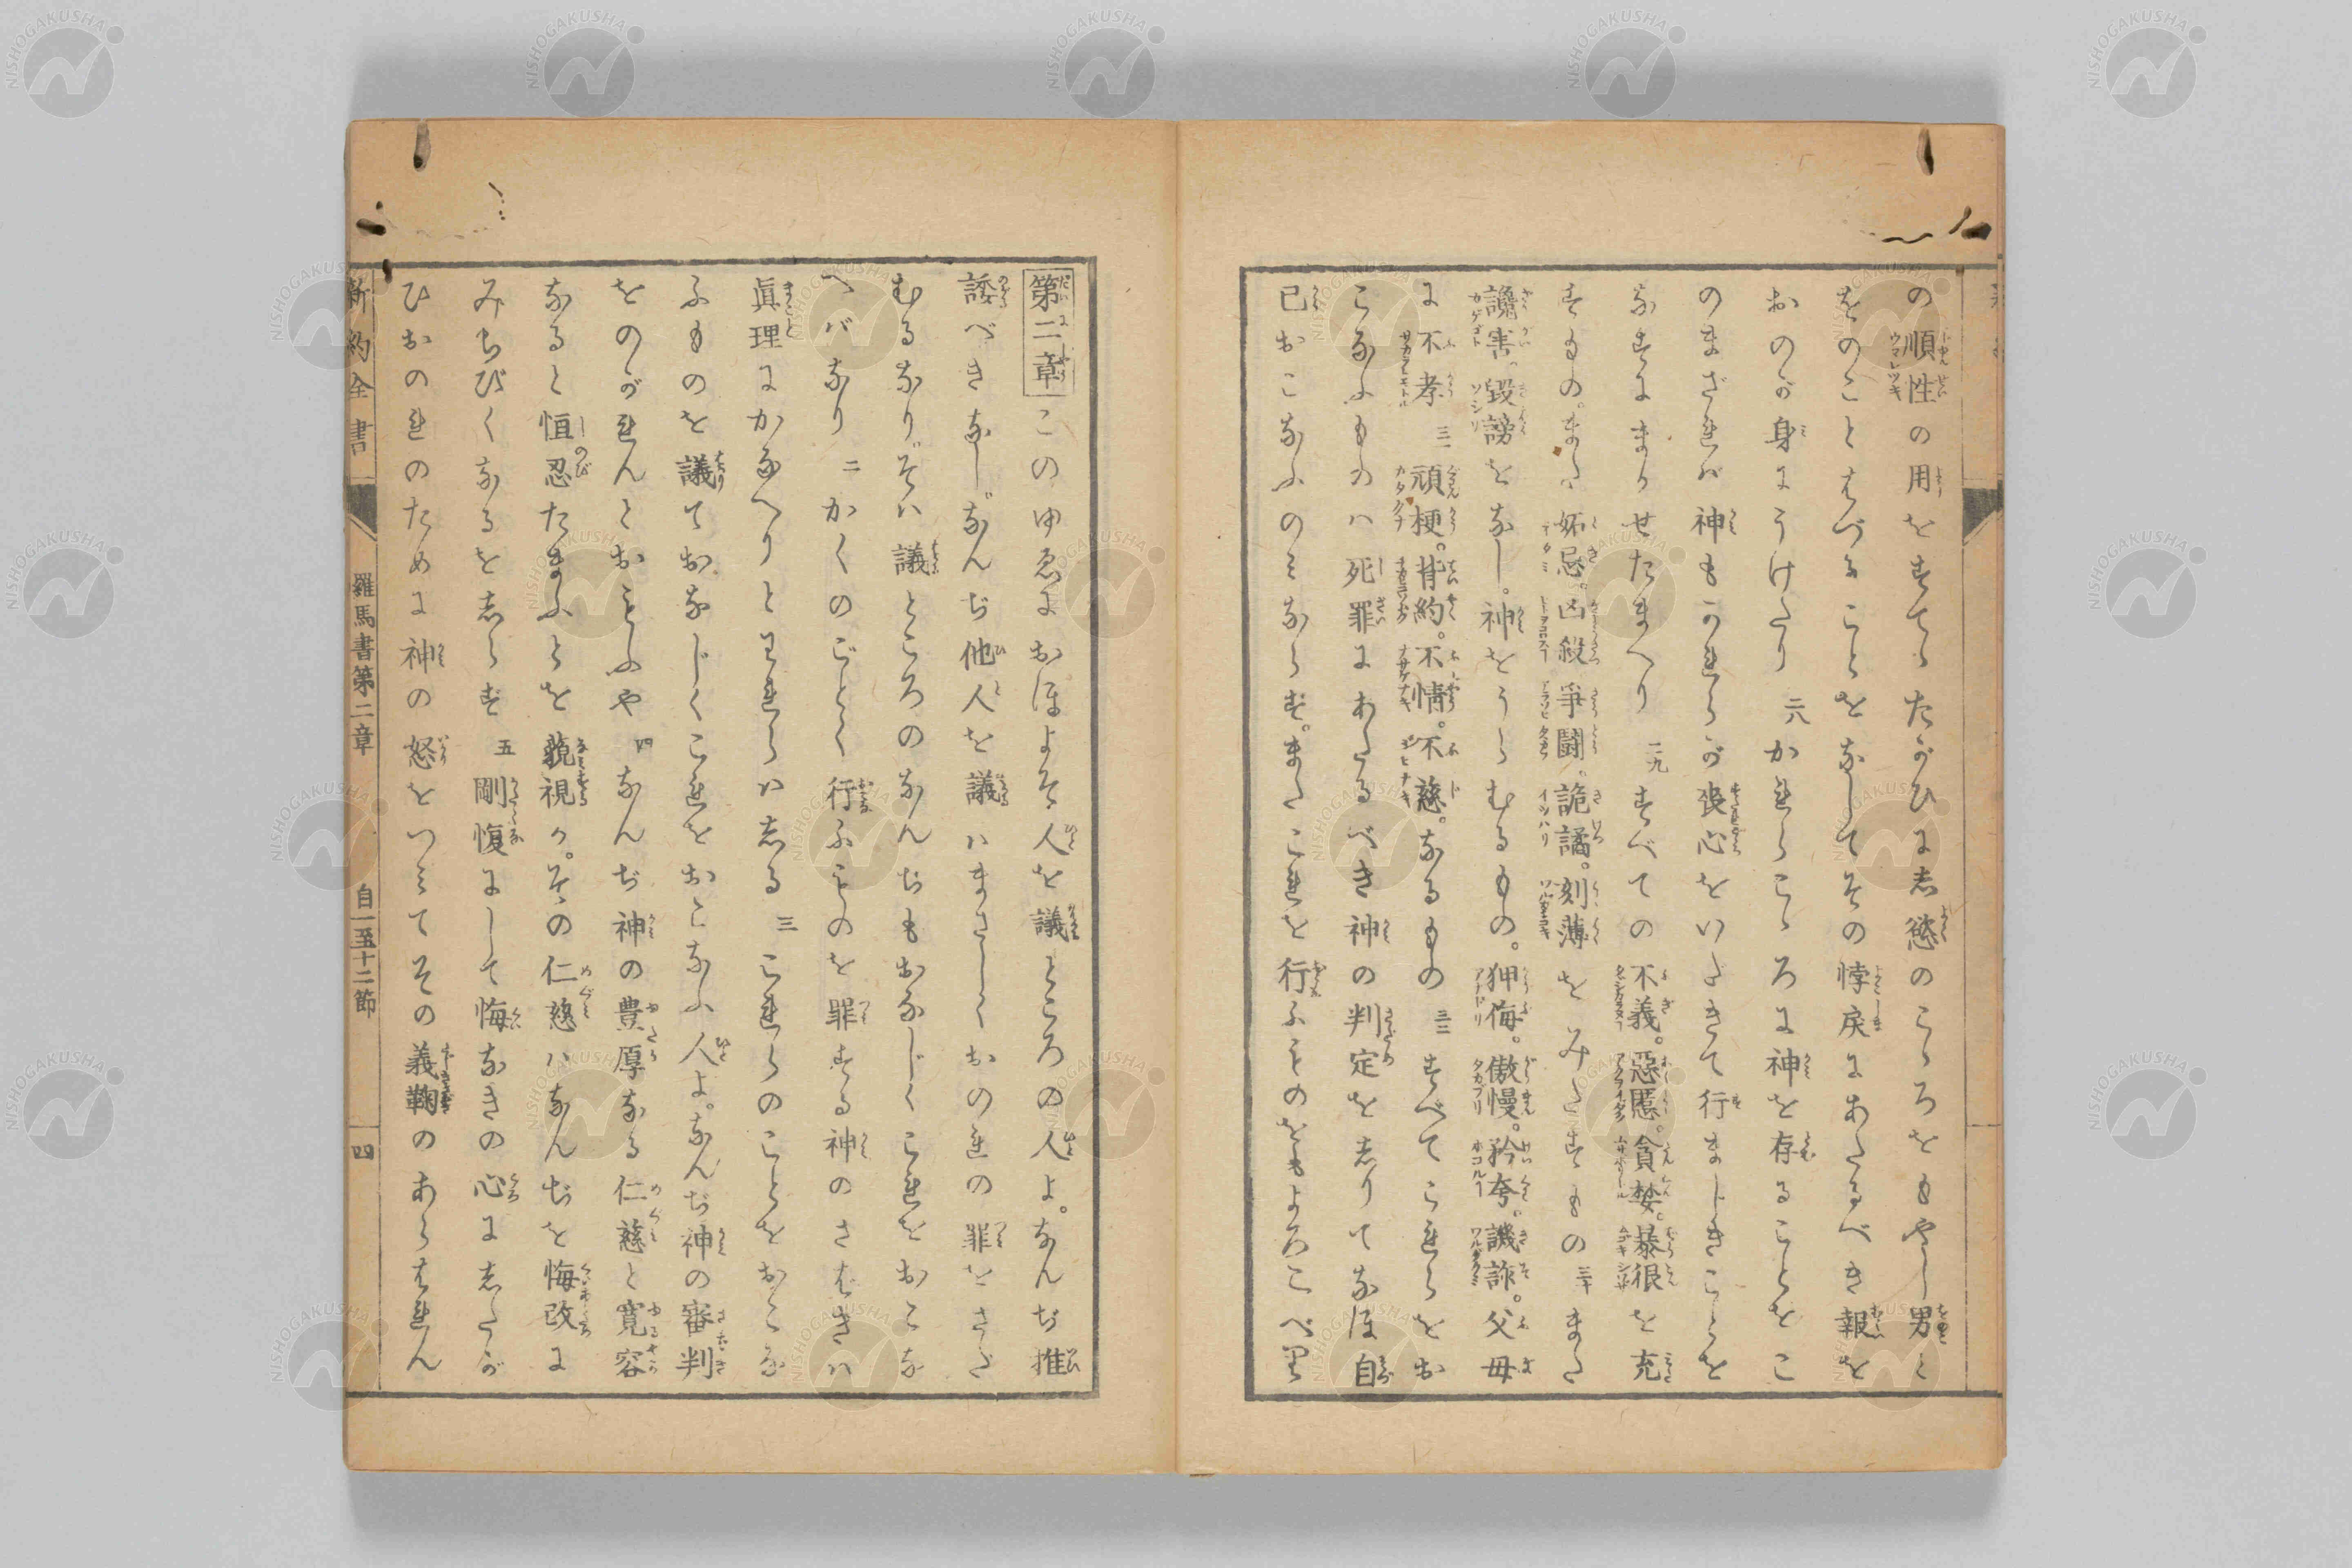 の順性の用をすてゝたがひに志慾のこゝろをもやし男と
をのことはづることをなしてその悖戻にあたるべき報を
おのが身にうけたり 二八 かれらこゝろに神を存ることをこ
のまざれバ神もかれらが喪心をいだきて行まじきことを
なすにまかせたまへり 二九 すべての不義。惡慝。貪婪。暴很を充
すもの。また妬忌。凶殺爭鬪。詭譎。刻薄をみたすもの 三十 また
讒害。毀謗をなし。神をうらむるもの。狎侮。傲慢。矜夸。譏詐。父母
に不孝 三一 頑梗。背約。不情。不慈。なるもの 三二 すべてこれらをお
こなふものハ死罪にあたるべき神の判定を志りてなほ自
已おこなふのミならず。またこれを行ふものをもよろこべり
第二章 このゆゑにおほよそ人を議ところの人よ。なんぢ推
諉べきなし。なんぢ他人を議ハまさしくおのれの罪をさだ
むるなり。そハ議ところのなんぢもおなじくこれをおこな
へバなり 二 かくのごとく行ふものを罪する神のさばきハ
眞理にかなへりとわれらハ志る 三 これらのことをおこな
ふものを議ておなじくこれをおこなふ人よ。なんぢ神の審判
をのがれんとおもふや 四 なんぢ神の豊厚なる仁慈と寛容
なると恒忍たまふとを藐視か。その仁慈ハなんぢを悔改に
みちびくなるを志らず 五 剛愎にして悔なきの心に志たが
ひおのれのために神の怒をつミてその義鞫のあらはれん
新約全書 羅馬書第二章 自一至十二節 四